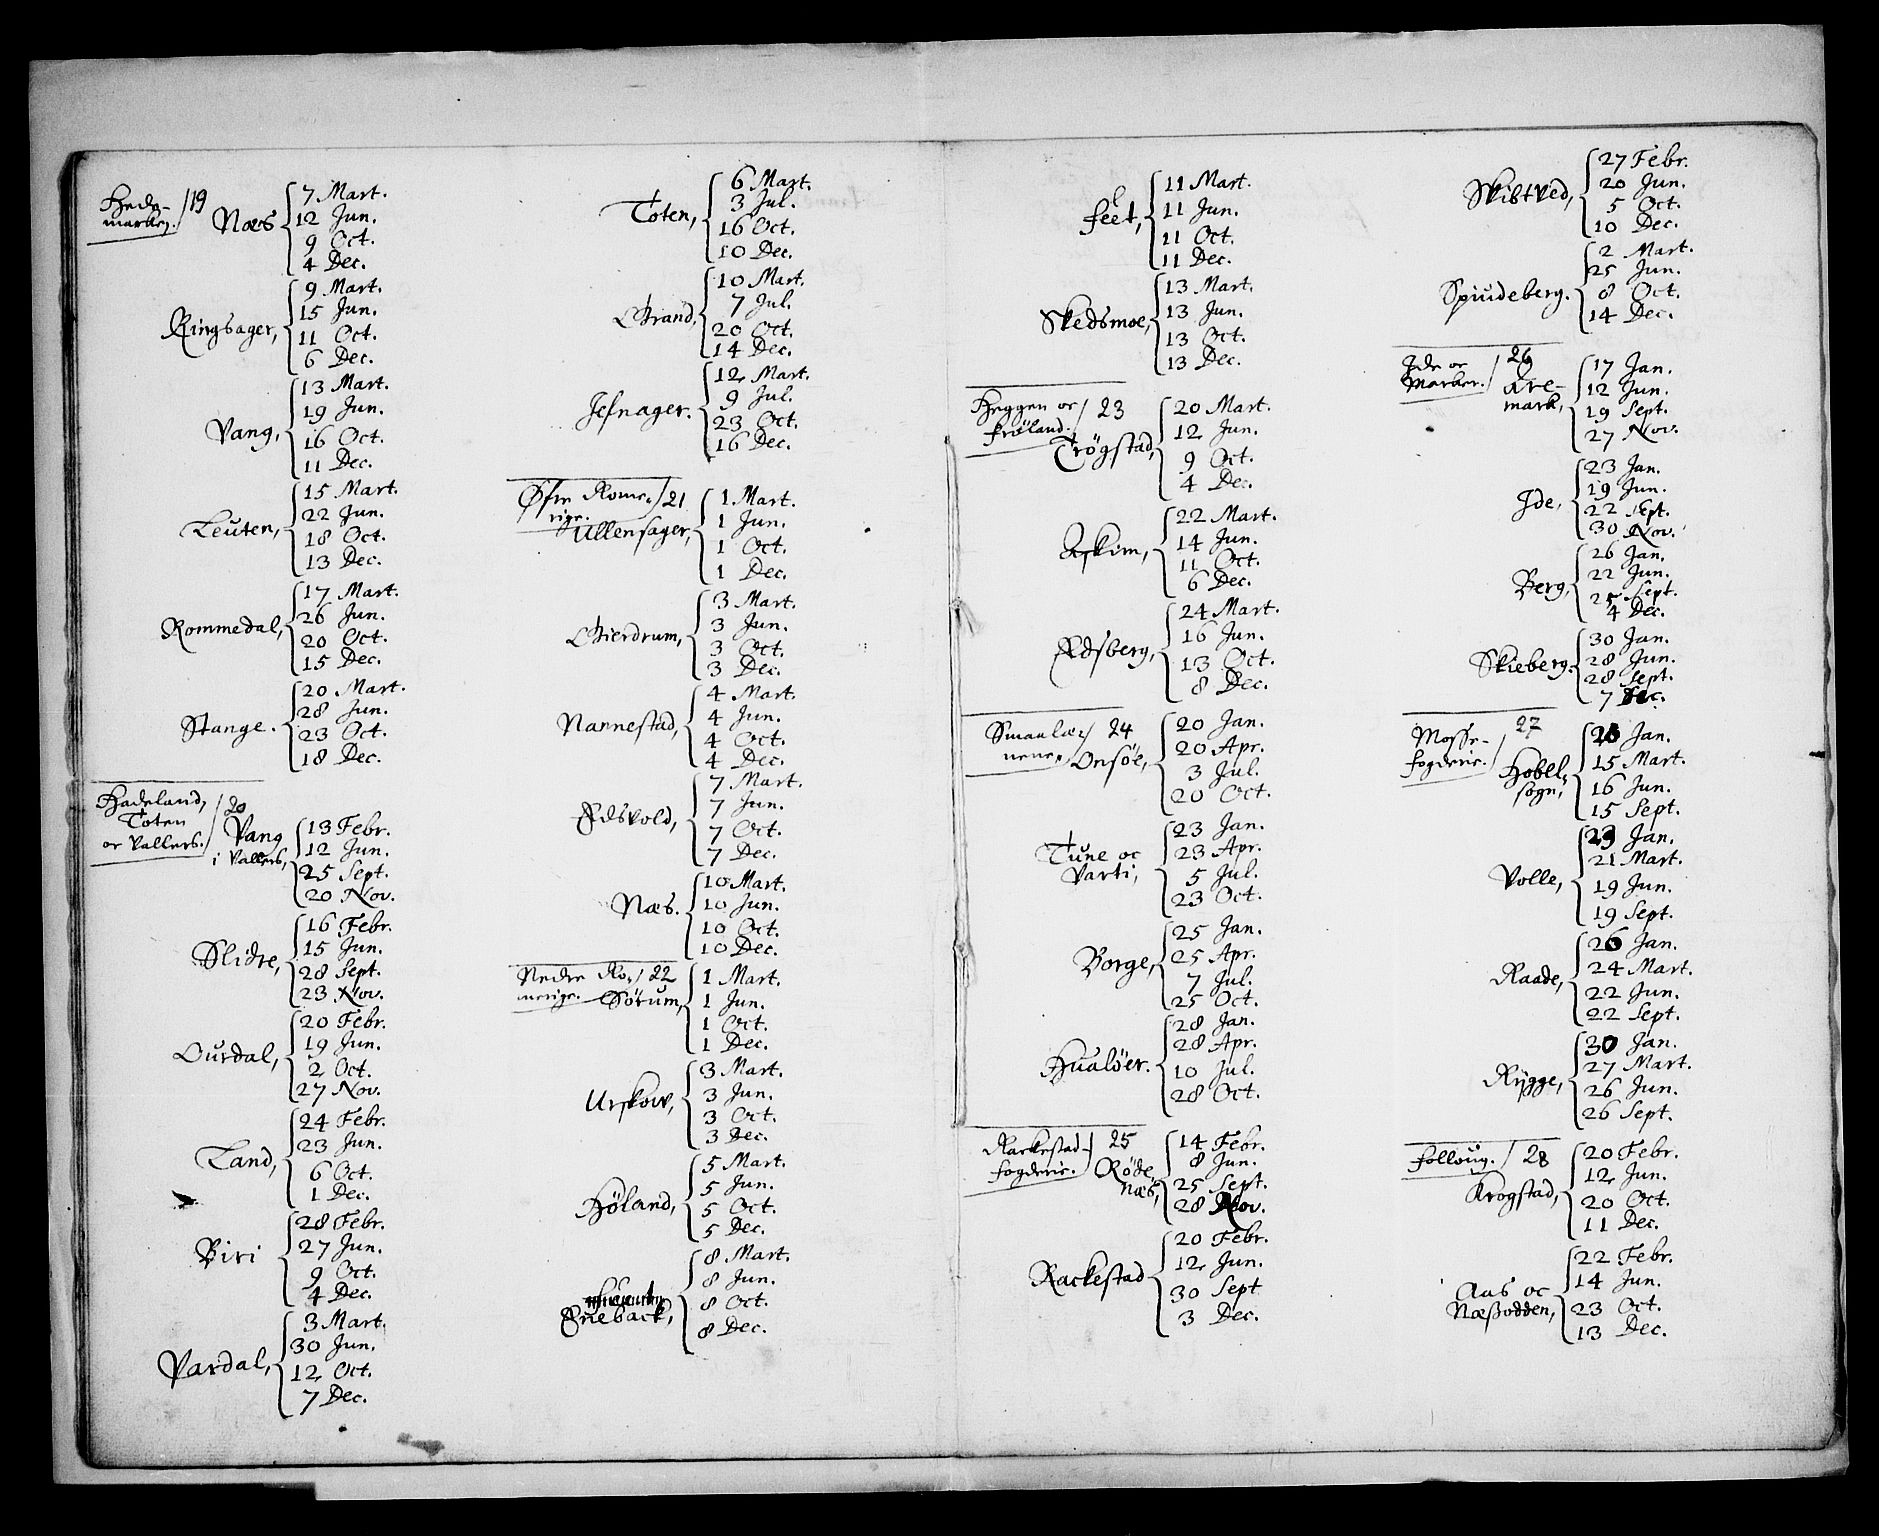 Hede- /19
marken.
Næs
7 Mart.
12 Jun.
9 Oct.
4 Dec.
Ringsager,
9 Mart.
15 Jun.
11 Oct.
6 Dec.
Vang,
13 Mart.
19 Jun.
16 Oct.
11 Dec.
Leuten,
15 Mart.
22 Jun.
18 Oct.
13 Dec.
Rommedal,
17 Mart.
26 Jun.
20 Oct.
15 Dec.
Stange.
20 Mart.
28 Jun.
23 Oct.
18 Dec.
Hadeland, /20
Toten
oc Vallers.
Vang
i Vallers,
13 Febr.
12 Jun.
25 Sept.
20 Nov.
Slidre,
16 Febr.
15 Jun.
28 Sept.
23 Nov.
Ourdal,
20 Febr.
19 Jun.
2 Oct.
27 Nov.
Land,
24 Febr.
23 Jun.
6 Oct.
1 Dec.
Biri
28 Febr.
27 Jun.
9 Oct.
4 Dec.
Vardal,
3 Mart.
30 Jun.
12 Oct.
7 Dec.
Toten,
6 Mart.
3 Jul.
16 Oct.
10 Dec.
Grand,
10 Mart.
7 Jul.
20 Oct.
14 Dec.
Jefnager.
12 Mart.
9 Jul.
23 Oct.
16 Dec.
Øfre Rome- /21
rige.
Ullensager,
1 Mart.
1 Jun.
1 Oct.
1 Dec.
Gierdrum,
3 Mart.
3 Jun.
3 Oct.
3 Dec.
Nannestad,
4 Mart.
4 Jun.
4 Oct.
4 Dec.
Edsvold,
7 Mart.
7 Jun.
7 Oct.
7 Dec.
Næs.
10 Mart.
10 Jun.
10 Oct.
10 Dec.
Nedre Ro- / 22
merige.
Sörum,
1 Mart.
1 Jun.
1 Oct.
1 Dec.
Urskow,
3 Mart.
3 Jun.
3 Oct.
3 Dec.
Höland,
5 Mart.
5 Jun.
5 Oct.
5 Dec.
Eneback,
8 Mart.
8 Jun.
8 Oct.
8 Dec.
Feet,
11 Mart.
11 Jun.
11 Oct.
11 Dec.
Skedsmoe,
13 Mart.
13 Jun.
13 Oct.
13 Dec.
Heggen oc / 23
Fröland.
Trögstad,
20 Mart.
12 Jun.
9 Oct.
4 Dec.
Askim,
22 Mart.
14 Jun.
11 Oct.
6 Dec.
Edsberg,
24 Mart.
16 Jun.
13 Oct.
8 Dec.
Smaalæ- / 24
nene.
Onsöe,
20 Jan.
20 Apr.
3 Jul.
20 Oct.
Tune oc
Varti,
23 Jan.
23 Apr.
5 Jul.
23 Oct.
Borge,
25 Jan.
25 Apr.
7 Jul.
25 Oct.
Hualöer.
28 Jan.
28 Apr.
10 Jul.
28 Oct.
Rackestad- / 25
fogderie.
Röde,
næs,
14 Febr.
8 Jun.
25 Sept.
28 Nov.
Rackestad
20 Febr.
12 Jun.
30 Sept
3 Dec.
Skibtved,
27 Febr.
20 Jun.
5 Oct.
10 Dec.
Spiudeberg.
2 Mart.
25 Jun.
8 Oct.
14 Dec.
Ide oc / 26
Marker.
Are-
mark,
17 Jan.
12 Jun.
19 Sept.
27 Nov.
Ide,
23 Jan.
19 Jun.
22 Sept.
30 Nov.
Berg,
26 Jan.
22 Jun.
25 Sept.
4 Dec.
Skieberg.
30 Jan.
28 Jun.
28 Sept.
7 Dec.
Mosse- / 27
fogderie.
Hobell,
sogn,
20 Jan.
15 Mart.
16 Jun.
15 Sept.
Volle,
23 Jan.
21 Mart.
19 Jun.
19 Sept.
Raade,
26 Jan.
24 Mart.
22 Jun.
22 Sept.
Rygge,
30 Jan.
27 Mart.
26 Jun.
26 Sept.
Folloug. / 28
Krogstad,
20 Febr.
12 Jun.
20 Oct.
11 Dec.
Aas oc
Næßodden,
22 Febr.
14 Jun.
23 Oct.
13 Dec.